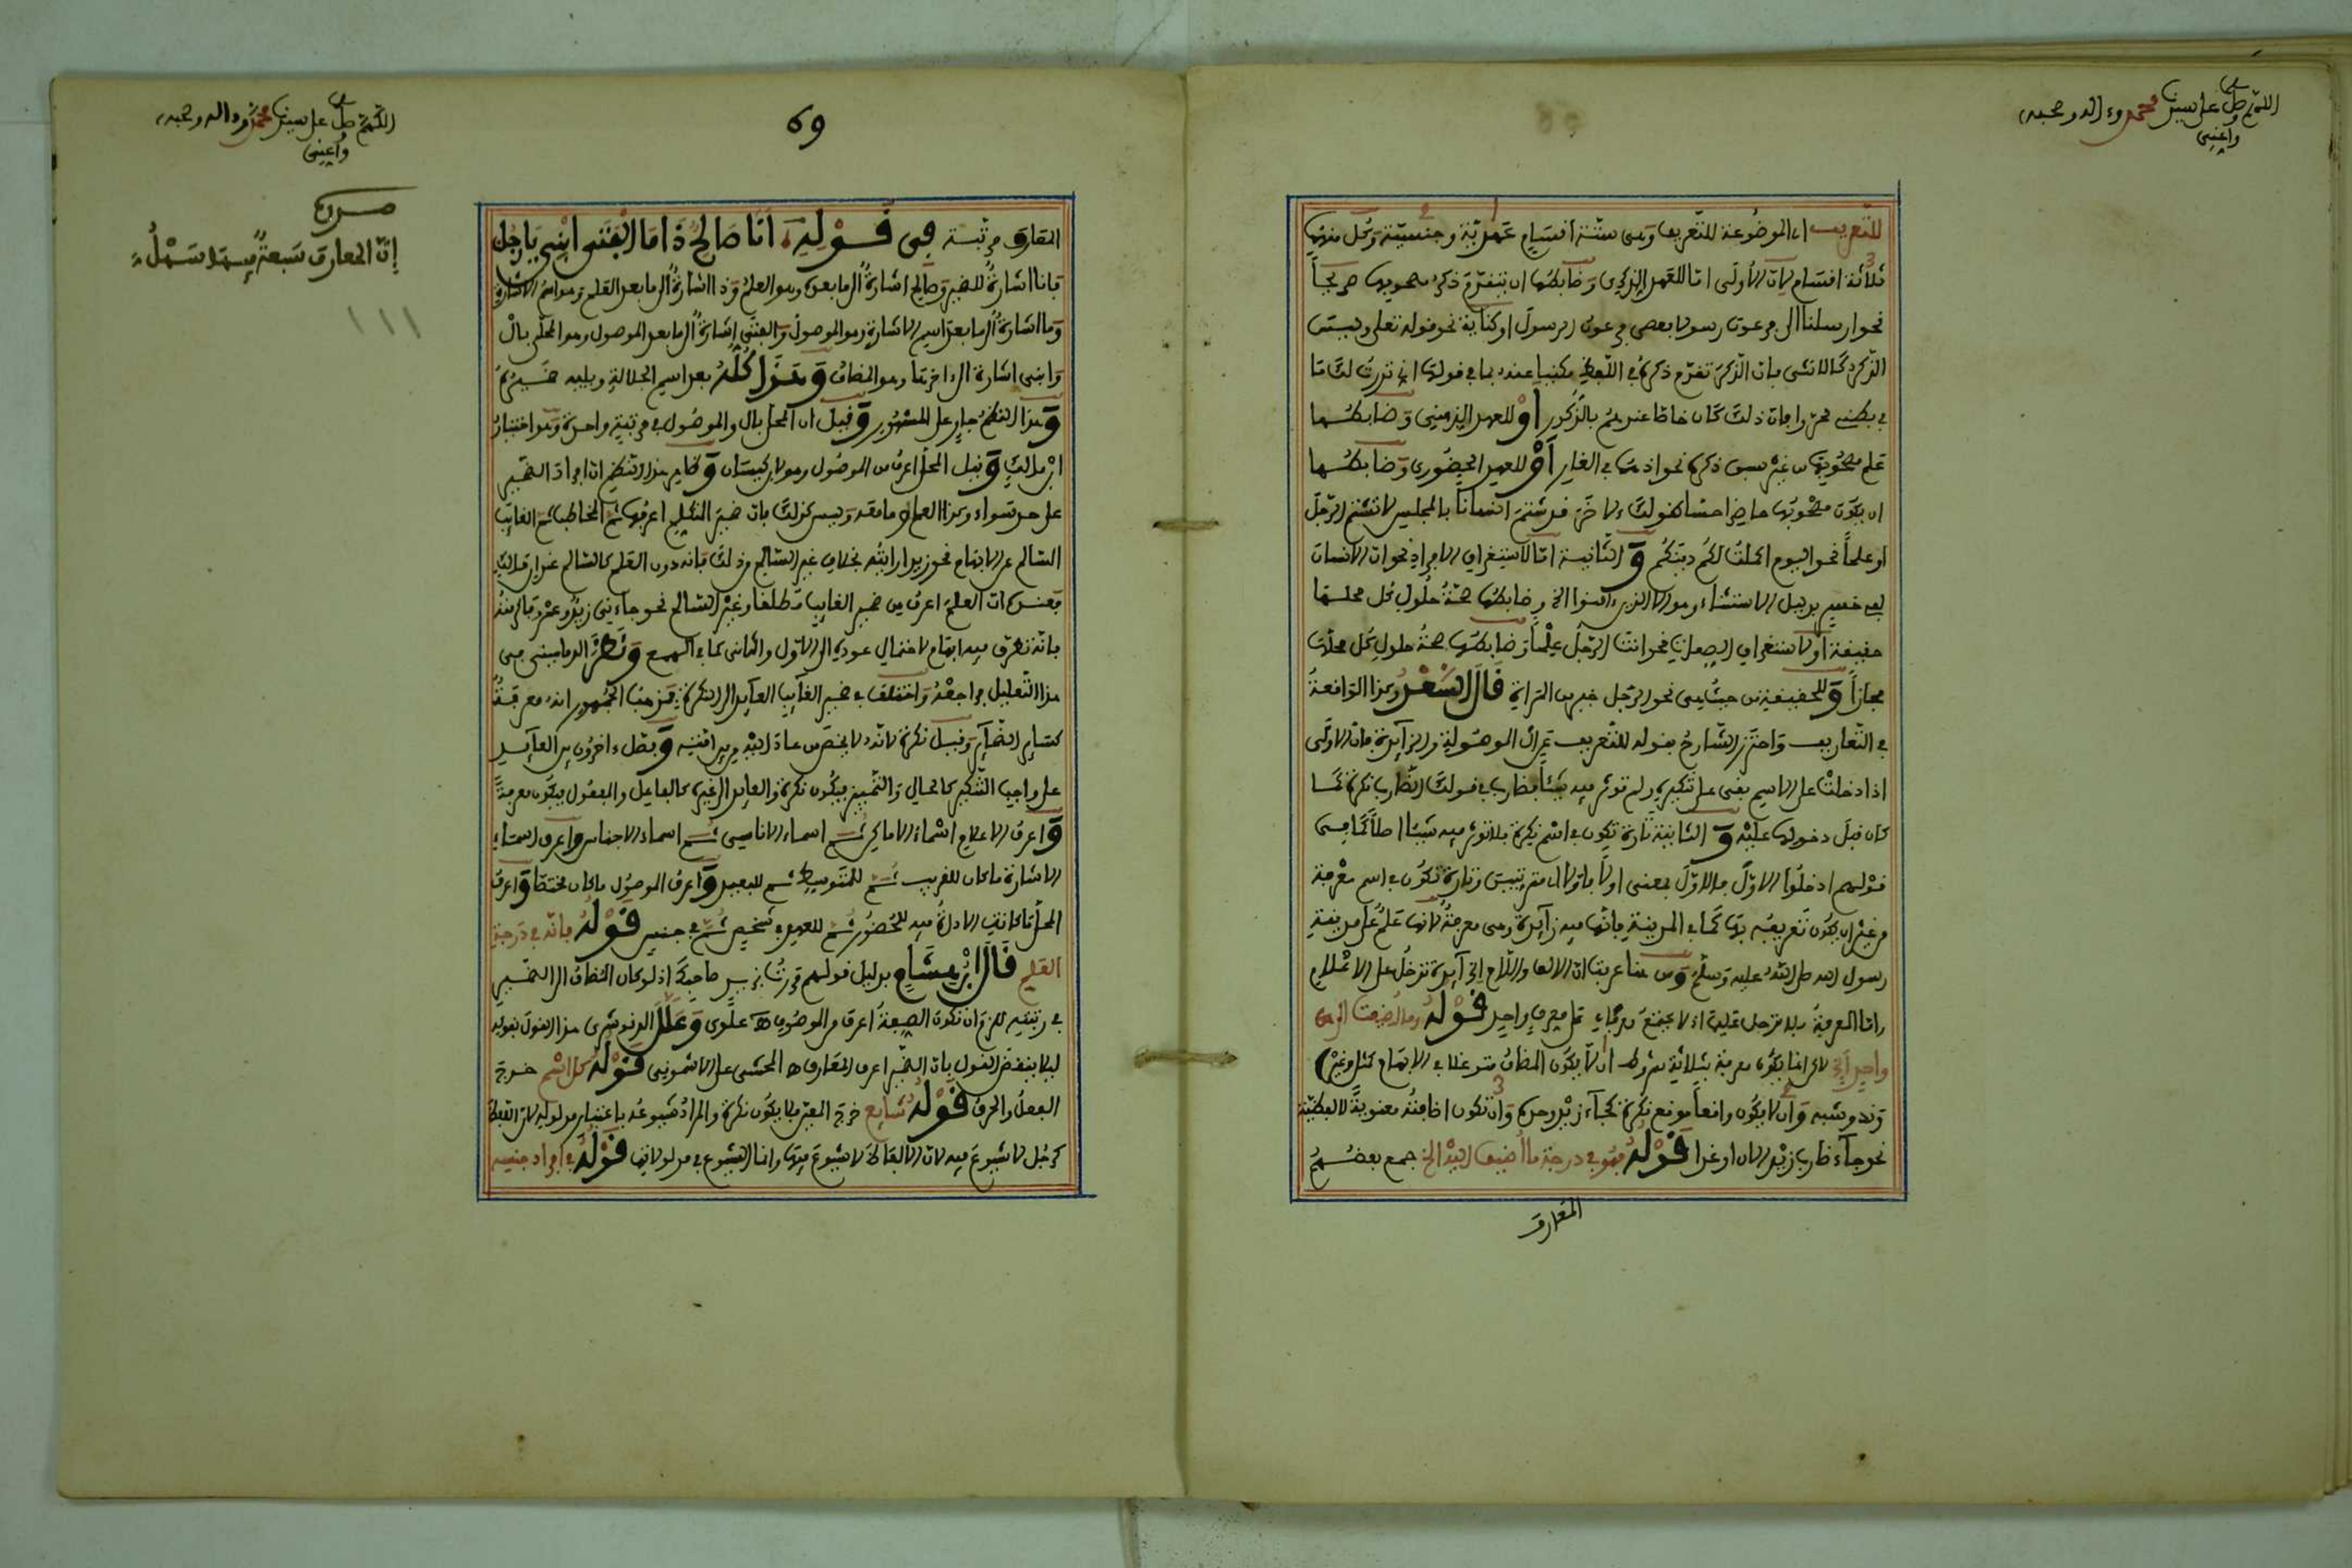 اللهم صل على سيدنا محمد وءاله وصحبه
وأعني
للتعريف أي الموضوعة للتعريف وهي ستة أقسام عهدية وجنسية وكل منهما
ثلاثة أقسام لأن الأولى اما للعهد الذكري وضابطها ان يتقدم ذكر مصحوبها صريحاً
نحو أرسلنا إلى فرعون رسولا فعصى فرعون الرسول أو كناية نحو قوله تعلى وليس
الذكر كالانثى فإن الذكر تقدم ذكره في اللفظ مكنيا عنه بما في قولها إني نذرت لك ما
في بطني محررا فإن ذلك كان خاصا عندهم بالذكور أو للعهد الذهني وضابطها
علم مصحوبها من غير سبق ذكره نحو إذ هما في الغار أو للعهد الحضوري وضابطها
ان يكون مصحوبها حاضرا حسّا كقولك لاخر قد شتم انسانا بالمجلس لا تشتم الرجل
أو علماً نحو اليوم اكملت لكم دينكم والثانية اما لاستغراق الافراد نحو ان الانسان
لفي خسر بدليل الاستثناء وهو الا الذين ءامنوا الخ وضابطها صحة حلول كل محلها
حقيقة أو لاستغراق الصفات نحو انت الرجل علماً وضابطها صحة حلول كل محلها
مجازاً وللحقيقة من حيث هي نحو الرجل خير من المرأة قال السعد وكذا الواقعة
في التعاريف واحترز الشارح بقوله للتعريف عن ال الموصولة والزايدة فإن الاولى
اذا دخلت على الاسم بقي على تنكيره ولم تؤثر فيه شيئا فضارب في قولك الضارب نكرة كما
كان قبل دخولها عليه والثانية تارة تكون في اسم نكرة فلا تؤثر فيه شيئا اصلا كما في
قولهم ادخلوا الاول فالاول بمعنى اولا فاولا اي مترتبين وتارة تكون في اسم معرفة
من غير ان يكون تعريفه بها كما في المدينة فإنها فيه زايدة وهي معرفة لانها علم على مدينة
رسول الله صلى الله عليه وسلم ومن هنا عرفت ان الالف واللام الزايدة تدخل على الاعلام
واما المعرفة فلا تدخل عليها اذ لا يجتمع معرفان على معرف واحد قوله وما أضيف الى
واحد الخ لاكن انما يكون معرفة بثلاثة شروط ان لا يكون المضاف متوغلا في الابهام كمثل وغير
وند وشبه وان لا يكون واقعاً موقع نكرة كجاء زيد وحده وان تكون اضافته معنوية لا لفظية
نحو جاء ضارب زيد الان او غدا قوله فهو في درجة ما أضيف اليه الخ جمع بعضهم
المعارف
69
اللهم صل على سيدنا محمد وءاله وصحبه
وأعني
إن المعارف سبعة فيها سهل
المعارف مرتبة في قوله أنا صالح ذا ما الفتى ابني يا رجل
فانا اشارة للضمير وصالح اشارة الى ما بعده وهو العلم وذا اشارة الى ما بعد العلم وهو اسم الاشارة
وما اشارة الى ما بعد اسم الاشارة وهو الموصول والفتى اشارة الى ما بعد الموصول وهو المحلى بال
وابني اشارة الى ءاخرها وهو المضاف وهذا كله بعد اسم الجلالة ويليه ضميره
وهذا النظم جار على المشهور وقيل ان المحلى بال والموصول في مرتبة واحدة وهو اختيار
ابن مالك وقيل المحلى اعرف من الموصول وهو لابن كيسان وظاهر هذا النظم ان افراد الضمير
على حد سواء وكذا العلم وما معه وليس كذلك فإن ضمير التكلم اعرفها ثم المخاطب ثم الغايب
السالم عن الابهام نحو زيدا رأيته بخلاف غير السالم من ذلك فإنه دون العلم
بعضهم ان العلم اعرف من ضمير الغايب مطلقا وغير السالم نحو جاءني زيد وعمرو فاكرمته
فإنه تطرق فيه ابهام لاحتمال عوده الى الاول والثاني كما في الهمع ونظر الدماميني في
هذا التعليل فراجعه واختلف في ضمير الغايب العايد الى النكرة فمذهب الجمهور انه معرفة
كساير الضماير وقيل نكرة لانه لا يخص من عاد اليه من بين امته وفصل ءاخرون بين العايد
على واجب التنكير كالحال والتمييز فيكون نكرة والعايد الى غيره كالفاعل والمفعول فيكون معرفة
واعرف الاعلام اسماء الاماكن ثم اسماء الاناسي ثم اسماء الاجناس واعرف اسماء
الاشارة ما كان للقريب ثم للمتوسط ثم للبعيد واعرف الموصول ما كان مختصا واعرف
المحلى ما كانت الاداة فيه للحضور ثم للعهد في شخص ثم في جنس قوله فإنه في درجة
العلم قال ابن هشام بدليل قولهم مررت بزيد صاحبك اذ لو كان المضاف الى الضمير
في رتبته للزم ان تكون الصفة اعرف من الموصوف هـ علوي وعلل الدنوشري هذا القول بقوله
ليلا ينتقض القول بان الضمير اعرف المعارف هـ المحشي على الاشموني قوله كل اسم خرج
الفعل والحرف قوله شايع خرج المعين فلا يكون نكرة والمراد شيوعه باعتبار مدلوله لان لفظة
كرجل لا شيوع فيه لان الالفاظ لا شيوع فيها وانما الشيوع في مدلولاتها قوله في افراد جنسه